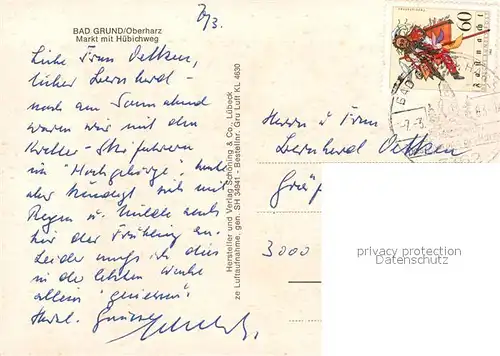 7/3.
BAD GRUND/Oberharz
Markt mit Hübichweg
Liebe Frau Oetken,
lieber Bernherd -
noch am Sonnabend
waren wir mit den
Skifahrern
im "Hochgebirge", heute
aber kündigt sich mit
Regen u. Milde auch
hier der Frühling an.
Leider muß ich dies
in der letzten Woche
allein "genießen".
Herzl. Grüsse
Hersteller und Verlag Schöning & Co., Lübeck
ze Luftaufnahme, gen. SH 34941 - Bestellnr. Gru Luft KL 4630
60
BAD
Herrn u. Frau
Bernherd Oetken
3000
privacy protection
Datenschutz